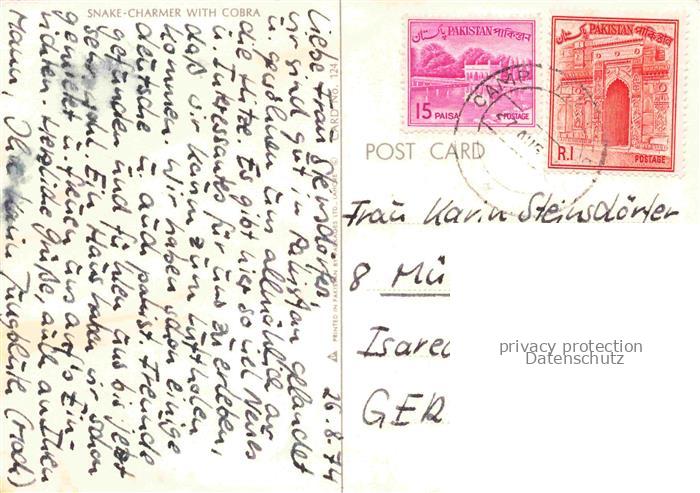 SNAKE-CHARMER WITH COBRA
26.8.74
Liebe Frau Steinsdörfer,
wir sind gut in Pakistan gelandet
u. gewöhnen uns allmählich an
die Hitze. Es gibt hier so viel Neues
u. Interessantes für uns zu erleben,
daß wir kaum zum Luftholen
kommen. Wir haben schon einige
deutsche u. auch pakist. Freunde
gefunden und fühlen uns bis jetzt
sehr wohl. Ein Haus haben wir schon
gemietet u. freuen uns auf's Ein-
richten. Herzliche Grüße, auch an Ihren
Mann, Ihre
PRINTED IN PAKISTAN BY
CARD No. 124
PAKISTAN
15 PAISA
POSTAGE
PAKISTAN
R.1
POSTAGE
CAMP
AUG
POST CARD
Frau Karin Steinsdörfer
8 Mü
Isarec
GER
privacy protection
Datenschutz